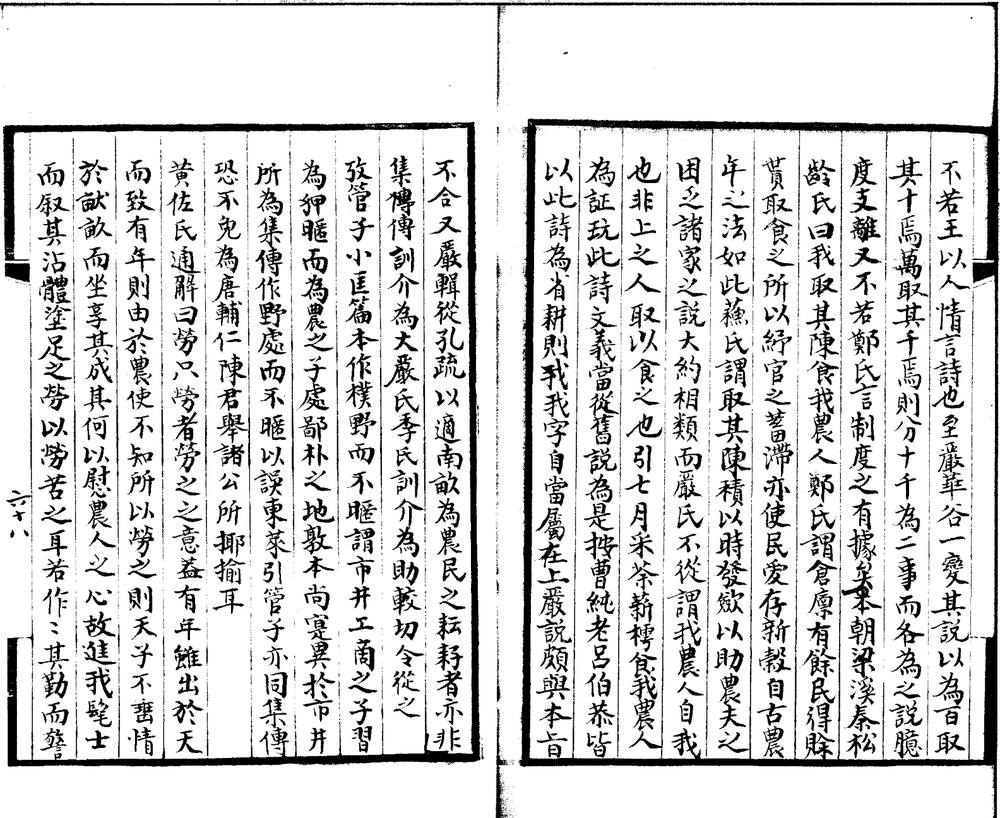 不若王以人情言詩也至嚴華谷一變其說以為百取
其十焉萬取其千焉則分十千為二事而各為之說臆
度支離又不若鄭氏言制度之有據矣本朝梁溪秦松
齡氏曰我取其陳食我農人鄭氏謂倉廪有餘民得賖
貰取食之所以紓官之蓄滯亦使民愛存新穀自古農
年之法如此蘓氏謂取其陳積以時發斂以助農夫之
困乏諸家之說大約相類而嚴氏不從謂我農人自我
也非上之人取以食之也引七月采荼薪樗食我農人
為証玩此詩文義當從舊說為是按曹純老呂伯恭皆
以此詩為省耕則我我字自當屬在上嚴說頗與本旨
不合又嚴輯從孔疏以適南畝為農民之耘耔者亦非
集傳傳訓介為大嚴氏季氏訓介為助較切今從之
攷管子小匡篇本作樸野而不暱謂市井工商之子習
為狎暱而為農之子處鄙朴之地敦本尚寔異於市井
所為集傳作野處而不暱以誤東萊引管子亦同集傳
恐不免為唐輔仁陳君舉諸公所揶揄耳
黄佐氏通解曰勞只勞者勞之之意葢有年雖出於天
而致有年則由於農使不知所以勞之則天子不啻情
於猷畝而坐享其成其何以慰農人之心故進我髦士
而叙其沾體塗足之勞以勞苦之耳若作〻其勤而警
六十八